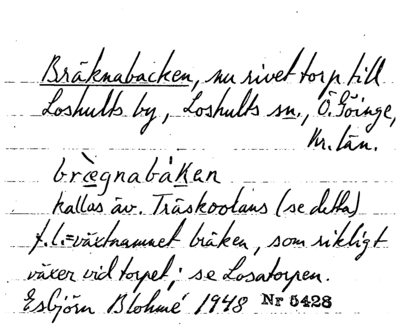 Bräknabacken, nu rivet torp till
Loshults by, Loshults sn., Ö. Göinge,
Kr. län.
brægnabåKen
kallas äv. Träskoolaus (se detta)
f.l. = växtnamnet bräken, som rikligt
växer vid torpet; se Losatorpen.
Esbjörn Blohmé 1948 Nr 5428